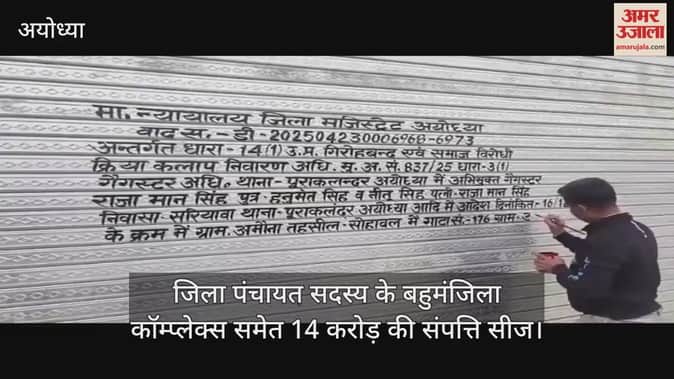 अयोध्या
अमर
उजाला
amarujala.com
मा. न्यायालय जिला मजिस्ट्रेट अयोध्या
वाद स.- डी- 202504230006968-6973
अन्तर्गत धारा- 14(1) उ.प्र. गिरोहबन्द एवं समाज विरोधी
क्रिया कलाप निवारण अधि. मु. अ. सं. 837/25 धारा-3(1)
गैंगस्टर अधि. थाना- पूराकलन्दर अयोध्या में अभियुक्त गैंगस्टर
राजा मान सिंह पुत्र- हनुमंत सिंह व नीतू सिंह पत्नी- राजा मान सिंह
निवासी सरियावा थाना- पूराकलंदर अयोध्या आदि में आदेश दिनांकित- 16/1
के क्रम में ग्राम. अमौना तहसील- सोहावल में गाटा सं.- 176 ग्राम. र
जिला पंचायत सदस्य के बहुमंजिला
कॉम्प्लेक्स समेत 14 करोड़ की संपत्ति सीज।